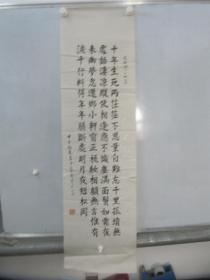 十年生死兩茫茫不思量自難忘千里孤墳無
處話淒涼縱使相逢應不識塵滿面鬢如霜夜
來幽夢忽還鄉小軒窗正梳妝相顧無言惟有
淚千行料得年年腸斷處明月夜短松岡